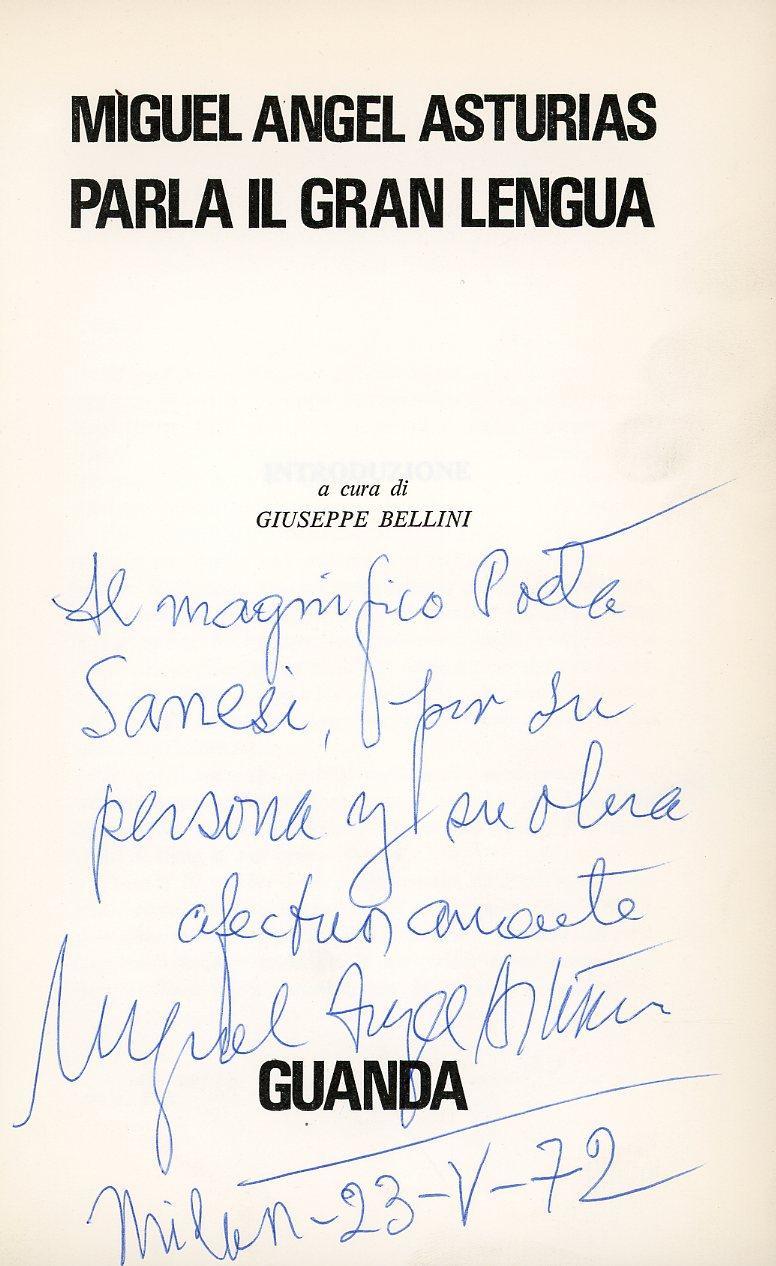 MIGUEL ANGEL ASTURIAS
PARLA IL GRAN LENGUA
INTRODUZIONE
a cura di
GIUSEPPE BELLINI
Al magnifico Poeta
Sanesi, por su
persona y su obra
afectuosamente
Miguel Angel Asturias
GUANDA
Milán-23-V-72